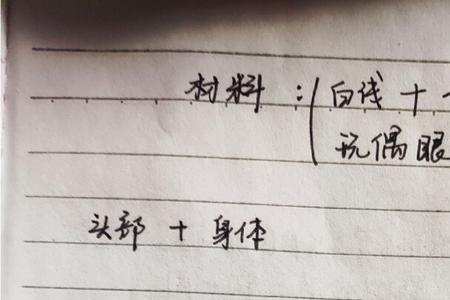 材料：(白线 +
玩偶眼
头部 + 身体